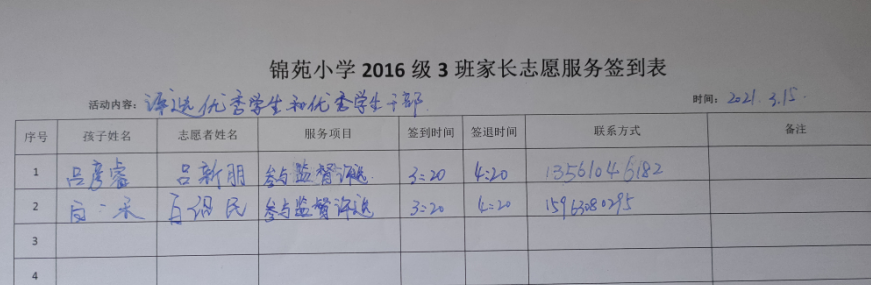 锦苑小学 2016 级 3 班家长志愿服务签到表
活动内容: 评选优秀学生和优秀学生干部 时间: 2021.3.15.
序号 孩子姓名 志愿者姓名 服务项目 签到时间 签退时间 联系方式 备注
1 吕彦睿 吕新朋 参与监督评选 3:20 4:20 13561046182
2 一禾 民 参与监督评选 3:20 4:20 15963080295
3
4